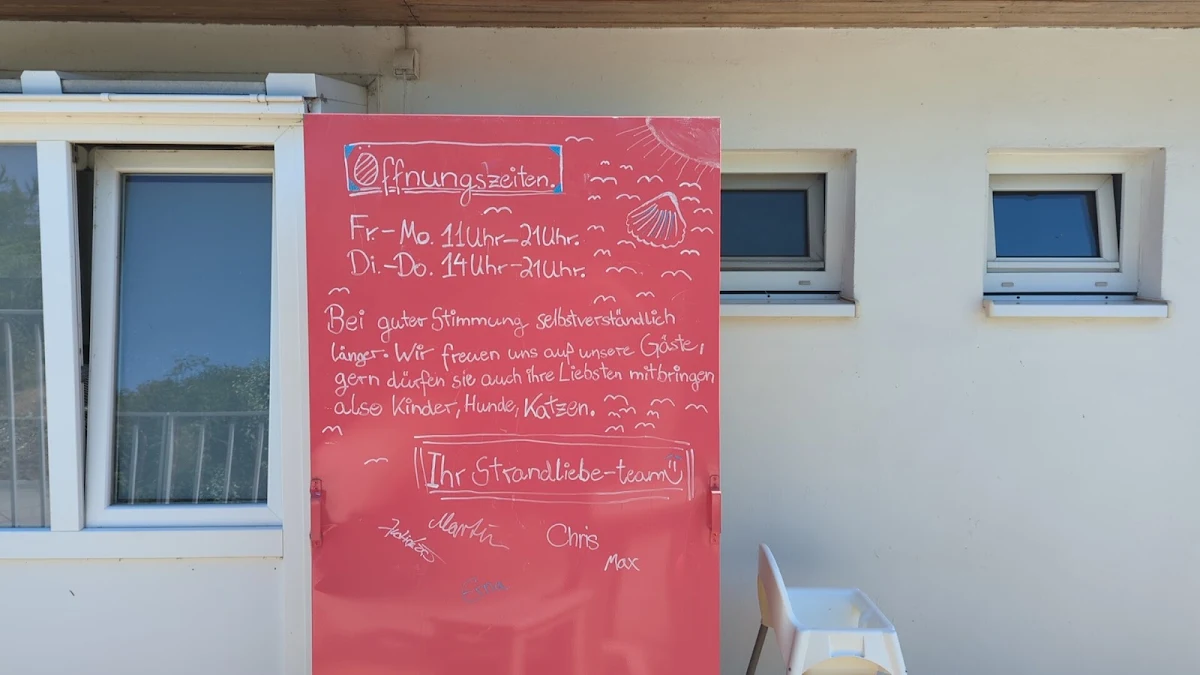 Öffnungszeiten.
Fr.-Mo. 11Uhr-21Uhr.
Di.-Do. 14Uhr-21Uhr.
Bei guter Stimmung selbstverständlich
länger. Wir freuen uns auf unsere Gäste,
gern dürfen sie auch ihre Liebsten mitbringen
also Kinder, Hunde, Katzen.
Ihr Strandliebe-team
Martin
Chris
Max